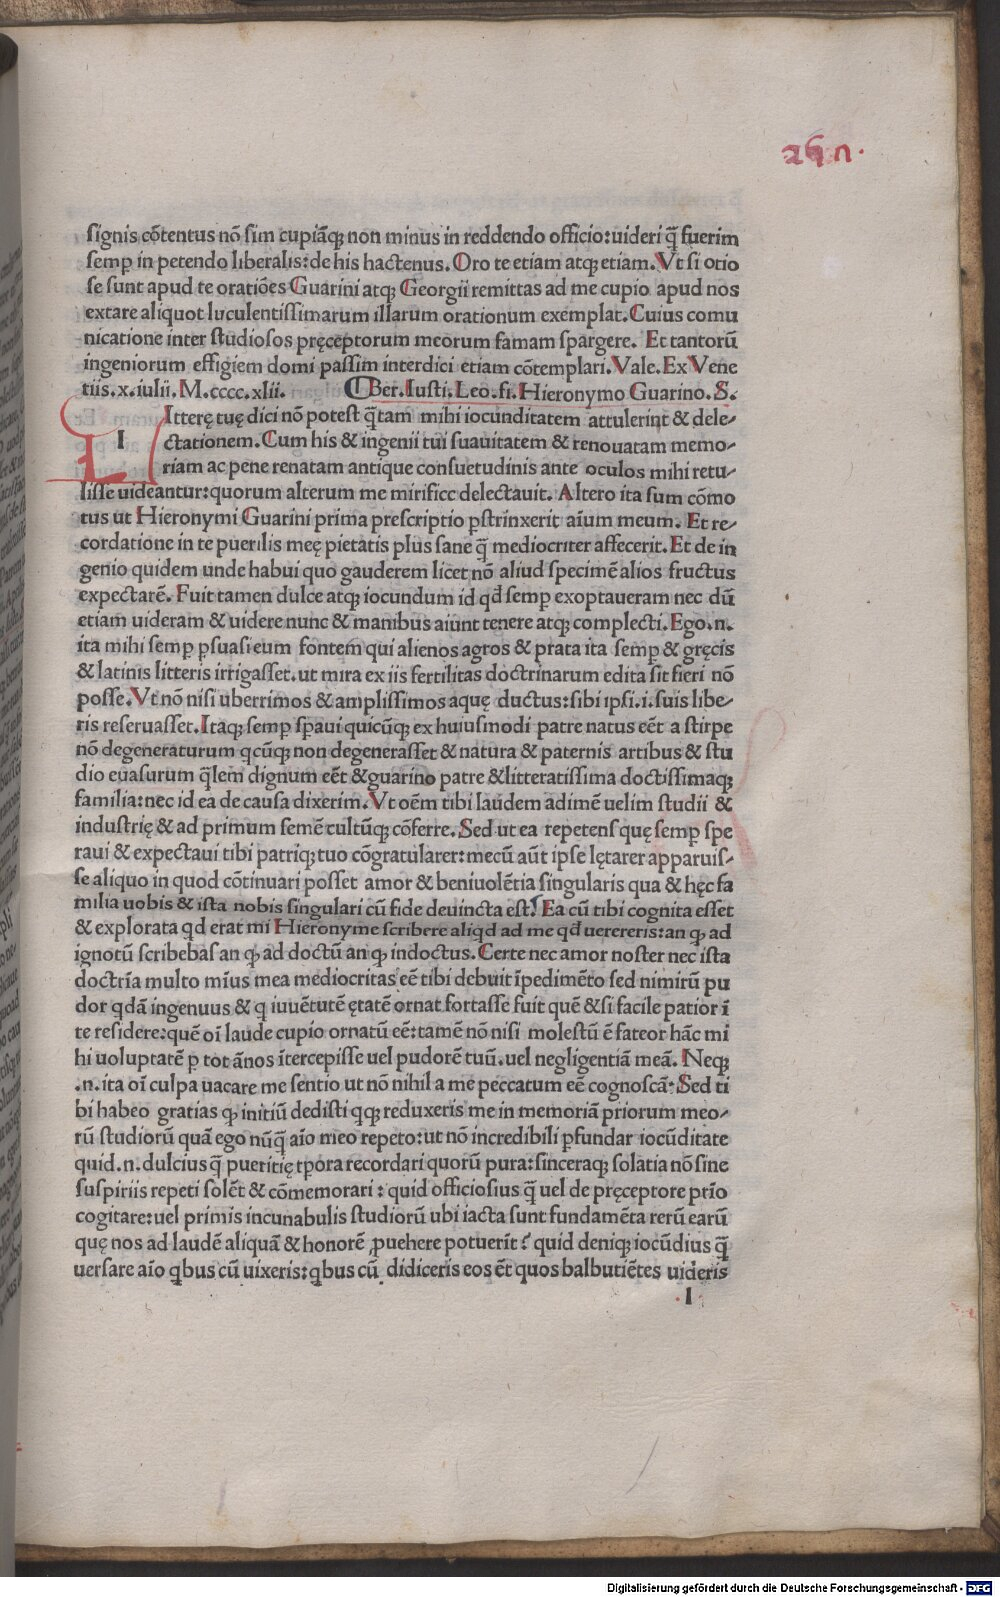 257.
ſignis cōtentus nō ſim cupiāqꝫ non minus in reddendo officio:uideri q̄ fuerim
ſemꝑ in petendo liberalis:de his hactenus.Oro te etiam atqꝫ etiam.Vt ſi otio
ſe ſunt apud te oratiōes Guarini atqꝫ Georgii remittas ad me cupio apud nos
extare aliquot luculentiſſimarum illarum orationum exemplat.Cuius comu
nicatione inter ſtudioſos pręceptorum meorum famam ſpargere. Et tantorū
ingeniorum effigiem domi paſſim interdici etiam cōtemplari.Vale.Ex Vene
tiis.x.iulii.M.cccc.xlii. ⸿Ber.Iuſti.Leo.fi.Hieronymo Guarino.S.
LIItterę tuę dici nō poteſt q̄tam mihi iocunditatem attulerint & dele⸗
ctationem.Cum his & ingenii tui ſuauitatem & renouatam memo⸗
riam ac pene renatam antique conſuetudinis ante oculos mihi retu⸗
liſſe uideantur:quorum alterum me mirifice delectauit. Altero ita ſum cōmo
tus ut Hieronymi Guarini prima preſcriptio ꝑſtrinxerit aīum meum. Et re⸗
cordatione in te puerilis meę pietatis plus ſane q̄ mediocriter affecerit.Et de in
genio quidem unde habui quo gauderem licet nō aliud ſpecimē alios fructus
expectarē. Fuit tamen dulce atqꝫ iocundum id qd ſemꝑ exoptaueram nec dū
etiam uideram & uidere nunc & manibus aiunt tenere atqꝫ complecti.Ego.n.
ita mihi ſemꝑ ꝑſuaſi eum fontem qui alienos agros & prata ita ſemꝑ & gręcis
& latinis litteris irrigaſſet.ut mira ex iis fertilitas doctrinarum edita ſit fieri nō
poſſe.Vt nō niſi uberrimos & ampliſſimos aquę ductus:ſibi ipſi.i.ſuis libe⸗
ris reſeruaſſet.Itaqꝫ ſemꝑ ſpaui quicūqꝫ ex huiuſmodi patre natus eēt a ſtirpe
nō degeneraturum qcūqꝫ non degeneraſſet & natura & paternis artibus & ſtu
dio euaſurum q̄lem dignum eēt & guarino patre & litteratiſſima doctiſſimaqꝫ
familia:nec id ea de cauſa dixerim.Vt oēm tibi laudem adimē uelim ſtudii &
induſtrię & ad primum ſemē cultūqꝫ cōferre.Sed ut ea repetens quę ſemꝑ ſpe
raui & expectaui tibi patriqꝫ tuo cōgratularer:mecū aūt ipſe lętarer apparuiſ⸗
ſe aliquo in quod cōtinuari poſſet amor & beniuolētia ſingularis qua & hęc fa
milia uobis & iſta nobis ſingulari cū fide deuincta eſt? Ea cū tibi cognita eſſet
& explorata qd erat mi Hieronyme ſcribere aliqd ad me qd uerereris:an ꝙ ad
ignotū ſcribebaſ an ꝙ ad doctū an ꝙ indoctus.Certe nec amor noſter nec iſta
doctrīa multo mīus mea mediocritas eē tibi debuit īpedimēto ſed nimirū pu
dor qdā ingenuus & q iuuētutē ętatē ornat fortaſſe fuit quē & ſi facile patior ī
te reſidere:quē oī laude cupio ornatū eē:tamē nō niſi moleſtū ē fateor hāc mi
hi uoluptatē ꝑ tot ānos ītercepiſſe uel pudorē tuū.uel negligentiā meā. Neqꝫ
.n.ita oī culpa uacare me ſentio ut nō nihil a me peccatum eē cognoſcā:Sed ti
bi habeo gratias ꝙ initiū dediſti qqꝫ reduxeris me in memoriā priorum meo⸗
rū ſtudiorū quā ego nūq̄ aīo meo repeto:ut nō incredibili ꝑfundar iocūditate
quid.n.dulcius q̄ pueritię tꝑora recordari quorū pura:ſinceraqꝫ ſolatia nō ſine
ſuſpiriis repeti ſolēt & cōmemorari : quid officioſius q̄ uel de pręceptore ptīo
cogitare:uel primis incunabulis ſtudiorū ubi iacta ſunt fundamēta rerū earū
quę nos ad laudē aliquā & honorē ꝓuehere potuerīt? quid deniqꝫ iocūdius q̄
uerſare aīo qbus cū uixeris:qbus cū didiceris eos ēt quos balbutiētes uideris
l
Digitalisierung gefördert durch die Deutsche Forschungsgemeinschaft - DFG